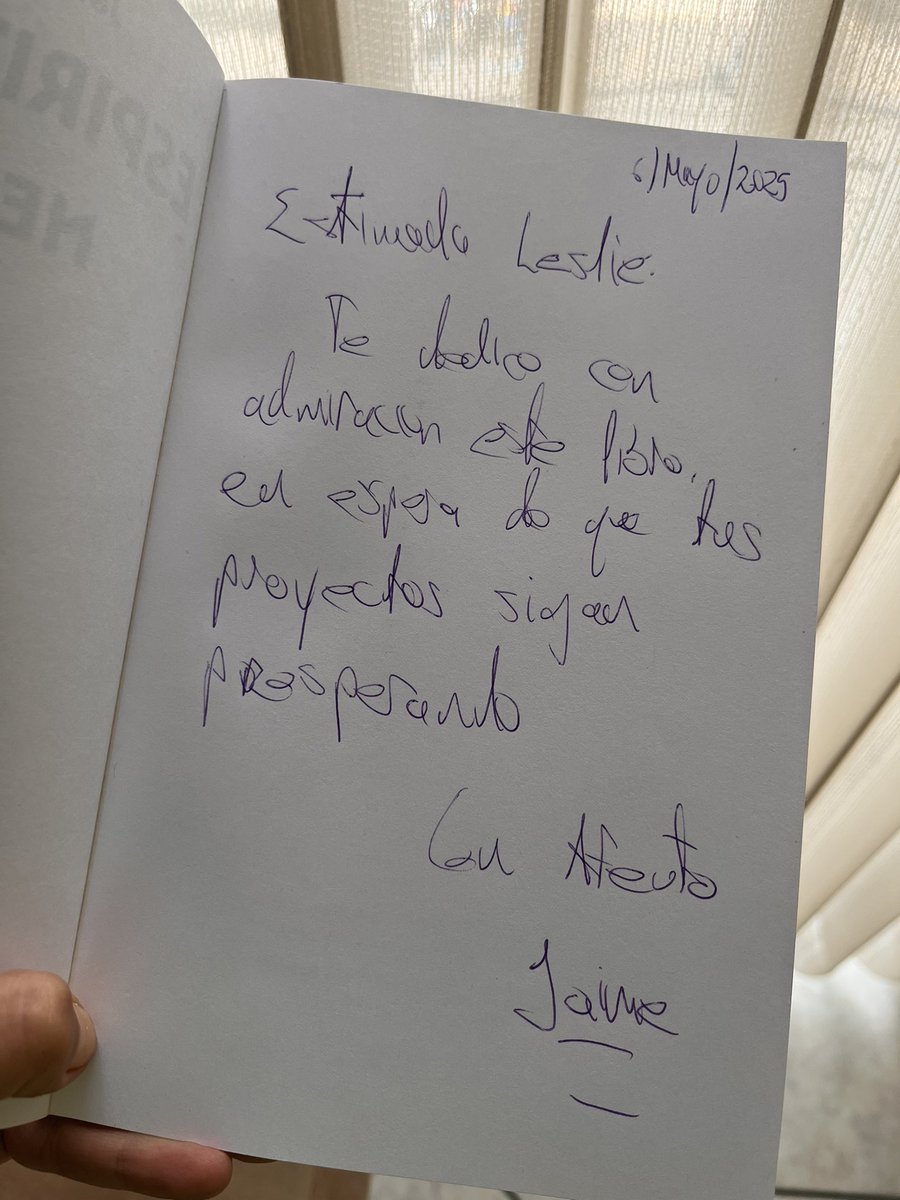 6/Mayo/2025
Estimada Leslie.
Te dedico con
admiracion este libro,
en espera de que tus
proyectos sigan
prosperando
Con Afecto
Jaime